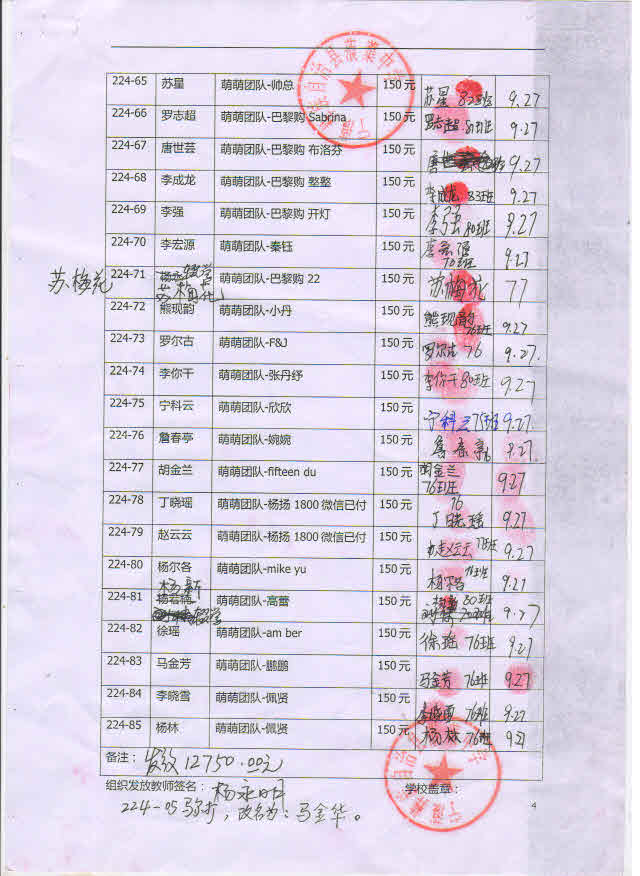 224-65 苏星 萌萌团队-帅总 150元 苏星 82班 9.27
224-66 罗志超 萌萌团队-巴黎购 Sabrina 150元 罗志超 9.27
224-67 唐世芸 萌萌团队-巴黎购 布洛芬 150元 唐世 9.27
224-68 李成龙 萌萌团队-巴黎购 整整 150元 李成龙 83班 9.27
224-69 李强 萌萌团队-巴黎购 开灯 150元 80班 9.27
224-70 李宏源 萌萌团队-秦钰 150元 9.27
苏梅花 224-71 苏梅花 萌萌团队-巴黎购 22 150元 苏梅花 77
224-72 熊现韵 萌萌团队-小丹 150元 熊现韵 76班 9.27
224-73 罗尔古 萌萌团队-F&J 150元 罗尔古 76 9.27.
224-74 李你干 萌萌团队-张丹纾 150元 李你干 80班 9.27
224-75 宁科云 萌萌团队-欣欣 150元 宁科云 75班 9.27.
224-76 詹春亭 萌萌团队-婉婉 150元 9.27.
224-77 胡金兰 萌萌团队-fifteen du 150元 胡金兰 76班 9.27
224-78 丁晓瑶 萌萌团队-杨扬 1800 微信已付 150元 76 丁晓瑶 9.27
224-79 赵云云 萌萌团队-杨扬 1800 微信已付 150元 赵云云 9.27
224-80 杨尔各 萌萌团队-mike yu 150元 9.27
杨新
224-81 萌萌团队-高蕾 150元 80班 9.27
224-82 徐瑶 萌萌团队-am ber 150元 徐瑶 76班 9.27
224-83 马金芳 萌萌团队-鹏鹏 150元 马金芳 76班 9.27
224-84 李晓雪 萌萌团队-佩贤 150元 76班 9.27
224-85 杨林 萌萌团队-佩贤 150元 杨林 76班 9.27
备注： 发放12750.00元
组织发放教师签名： 杨永明 学校盖章：
224-05 马尔打，改名为：马金华。
4